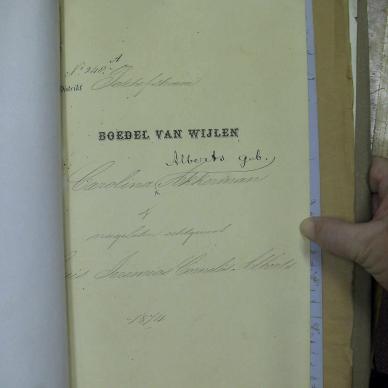 No 248. A
Distrikt Potchefstroom
BOEDEL VAN WIJLEN
Alberts geb.
Carolina Akkerman
&
nagelaten echtgenoot
Cornelis Alberts
1874